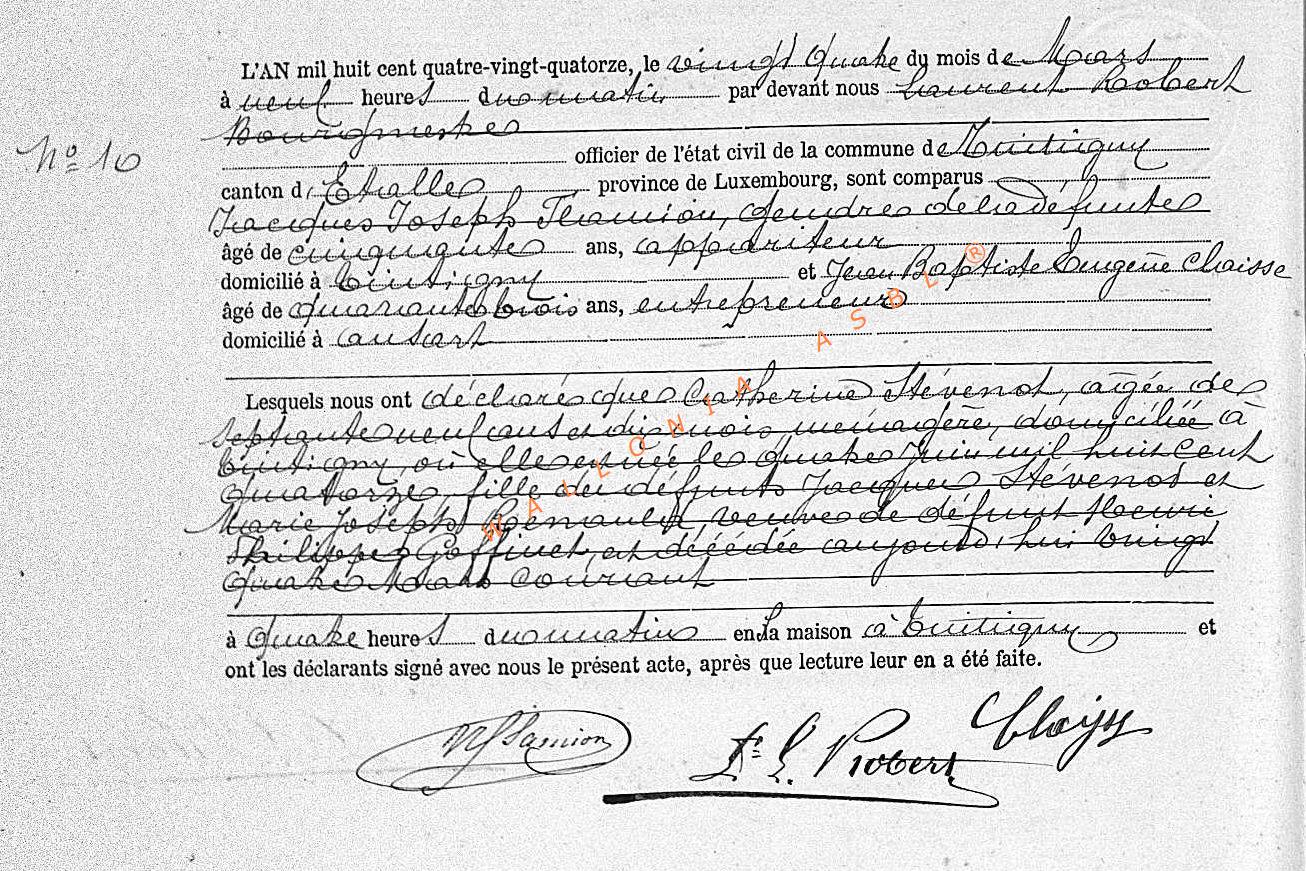 L'AN mil huit cent quatre-vingt-quatorze, le vingt quatre du mois de Mars
à neuf heures du matin par devant nous Laurent Robert
Bourgmestre
N° 10
officier de l'état civil de la commune de Tintigny
canton d'Etalle province de Luxembourg, sont comparus
Jacques Joseph Flamion, gendre de la défunte
âgé de cinquante ans, appariteur
domicilié à Tintigny et Jean Baptiste Eugène Claisse
âgé de quarante trois ans, entrepreneur
domicilié à ansart
Lesquels nous ont déclaré que Catherine Stévenot, agée de
septante neuf ans et dix mois ménagère, domiciliée à
Tintigny, où elle est née le quatre Juin mil huit cent
quatorze, fille de défunts Jacques Stévenot et
Marie Joseph veuve de défunt Henri
Philippe Goffinet, est décédée aujourd'hui vingt
quatre Mars courant
à quatre heures du matin en la maison à Tintigny et
ont les déclarants signé avec nous le présent acte, après que lecture leur en a été faite.
Flamion L. Robert Claisse
WALLONIA ASBL ®